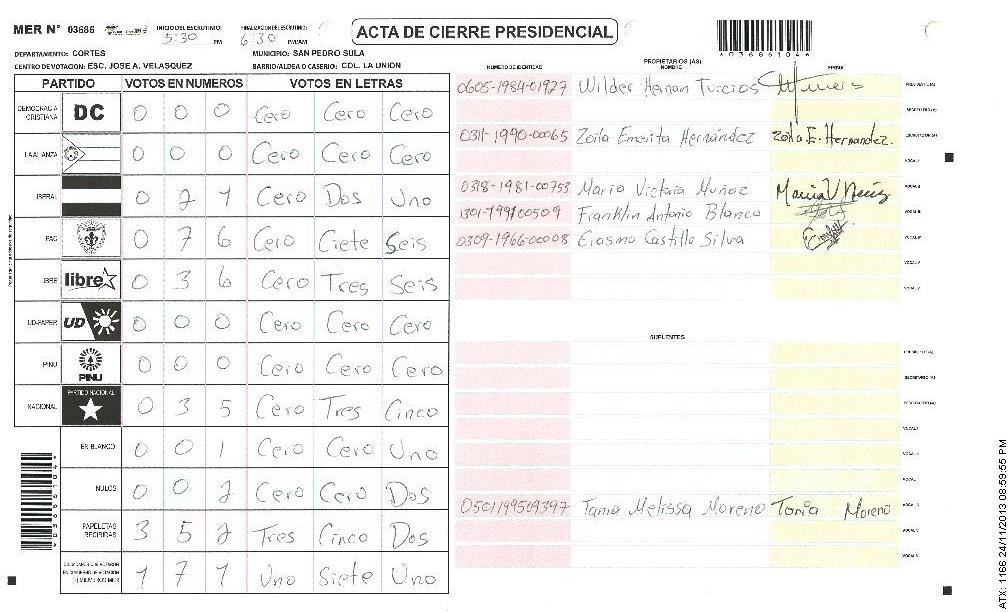 MER N° 03686
INICIO DEL ESCRUTINIO:
5:30 PM
FINALIZACION DEL ESCRUTINIO:
6:30 PM/AM
ACTA DE CIERRE PRESIDENCIAL
DEPARTAMENTO: CORTES
MUNICIPIO: SAN PEDRO SULA
CENTRO DE VOTACION: ESC. JOSE A. VELASQUEZ
BARRIO/ALDEA O CASERIO: COL. LA UNION
PARTIDO VOTOS EN NUMEROS VOTOS EN LETRAS
DEMOCRACIA CRISTIANA DC 0 0 0 Cero Cero Cero
LA ALIANZA 0 0 0 Cero Cero Cero
LIBERAL 0 2 1 Cero Dos Uno
PAC 0 7 6 Cero Ciete Seis
LIBRE libre 0 3 6 Cero Tres Seis
UD-FAPER UD 0 0 0 Cero Cero Cero
PINU PINU 0 0 0 Cero Cero Cero
NACIONAL PARTIDO NACIONAL 0 3 5 Cero Tres Cinco
EN BLANCO 0 0 1 Cero Cero Uno
NULOS 0 0 2 Cero Cero Dos
PAPELETAS RECIBIDAS 3 5 2 Tres Cinco Dos
1 7 1 Uno Siete Uno
NUMERO DE IDENTIDAD
PROPIETARIOS (AS)
NOMBRE
FIRMA
0605-1984-01927 Wilder Hernan Turcios
0311-1990-00065 Zoila Emerita Hernández Zoila E. Hernandez.
0318-1981-00753 Maria Victoria Muñoz
1301-1991 00509 Franklin Antonio Blanco
0309-1966-00008 Erasmo Castillo Silva
SUPLENTES
0501199509397 Tania Melissa Moreno Tania Moreno
ATX: 1166 24/11/2013 08:59:55 PM